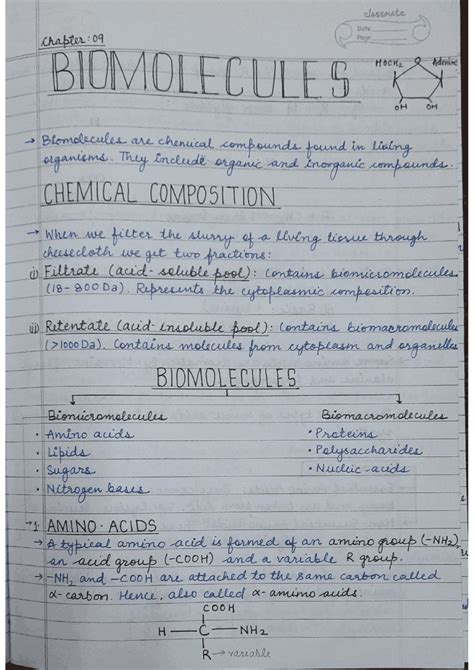 classmate
Date
Page
Chapter: 09
BIOMOLECULES
HOCH₂ O Adenine
OH OH
→ Biomolecules are chemical compounds found in living
organisms. They include organic and inorganic compounds.
CHEMICAL COMPOSITION
→ When we filter the slurry of a living tissue through
cheesecloth we get two fractions:
i) Filtrate (acid-soluble pool): Contains biomicromolecules
(18-800Da). Represents the cytoplasmic composition.
ii) Retentate (acid-insoluble pool): Contains biomacromolecules
(>1000Da). Contains molecules from cytoplasm and organelles
BIOMOLECULES
Biomicromolecules
• Amino acids
• Lipids
• Sugars
• Nitrogen bases
Biomacromolecules
• Proteins
• Polysaccharides
• Nucleic-acids
→ 1. AMINO-ACIDS
→ A typical amino-acid is formed of an amino group (-NH₂),
an acid group (-COOH) and a variable R group.
→ -NH₂ and -COOH are attached to the same carbon called
α-carbon. Hence, also called α-amino acids.
COOH
H — C — NH₂
R → variable